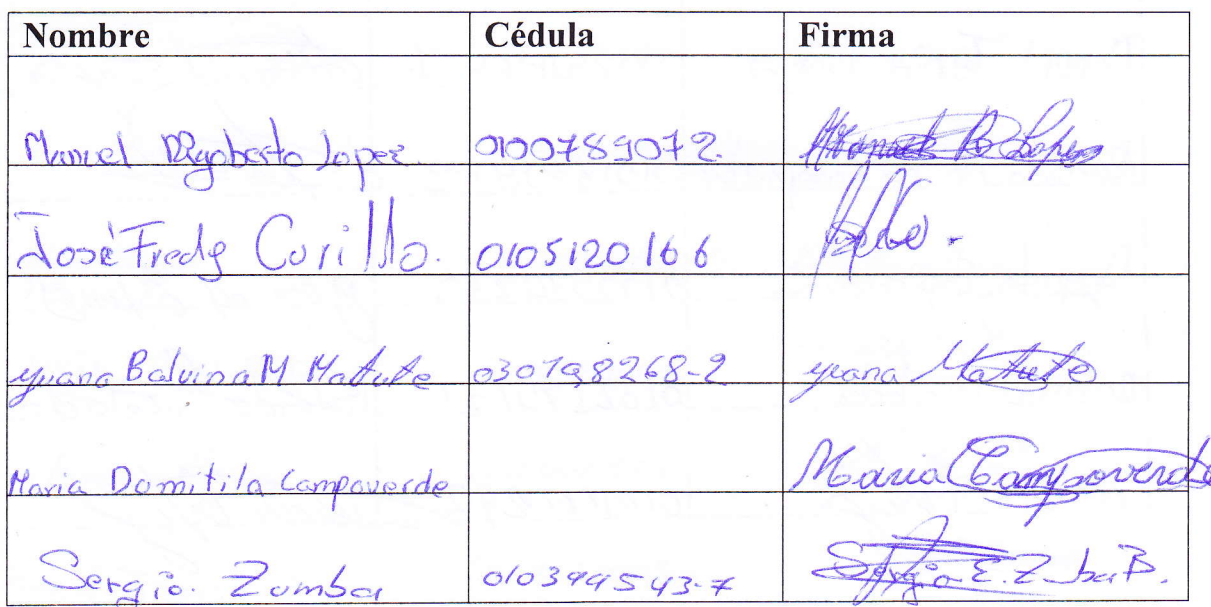 Nombre Cédula Firma
Manuel Rigoberto Lopez. 0100789072 Manuel R Lopez
José Fredy Curillo. 0105120166
yuana Balvina M Matute 030798268-2 yuana Matute
Maria Domitila Campoverde Maria Campoverde
Sergio. Zumba 010394543-7 Sergio E. Z ba B.